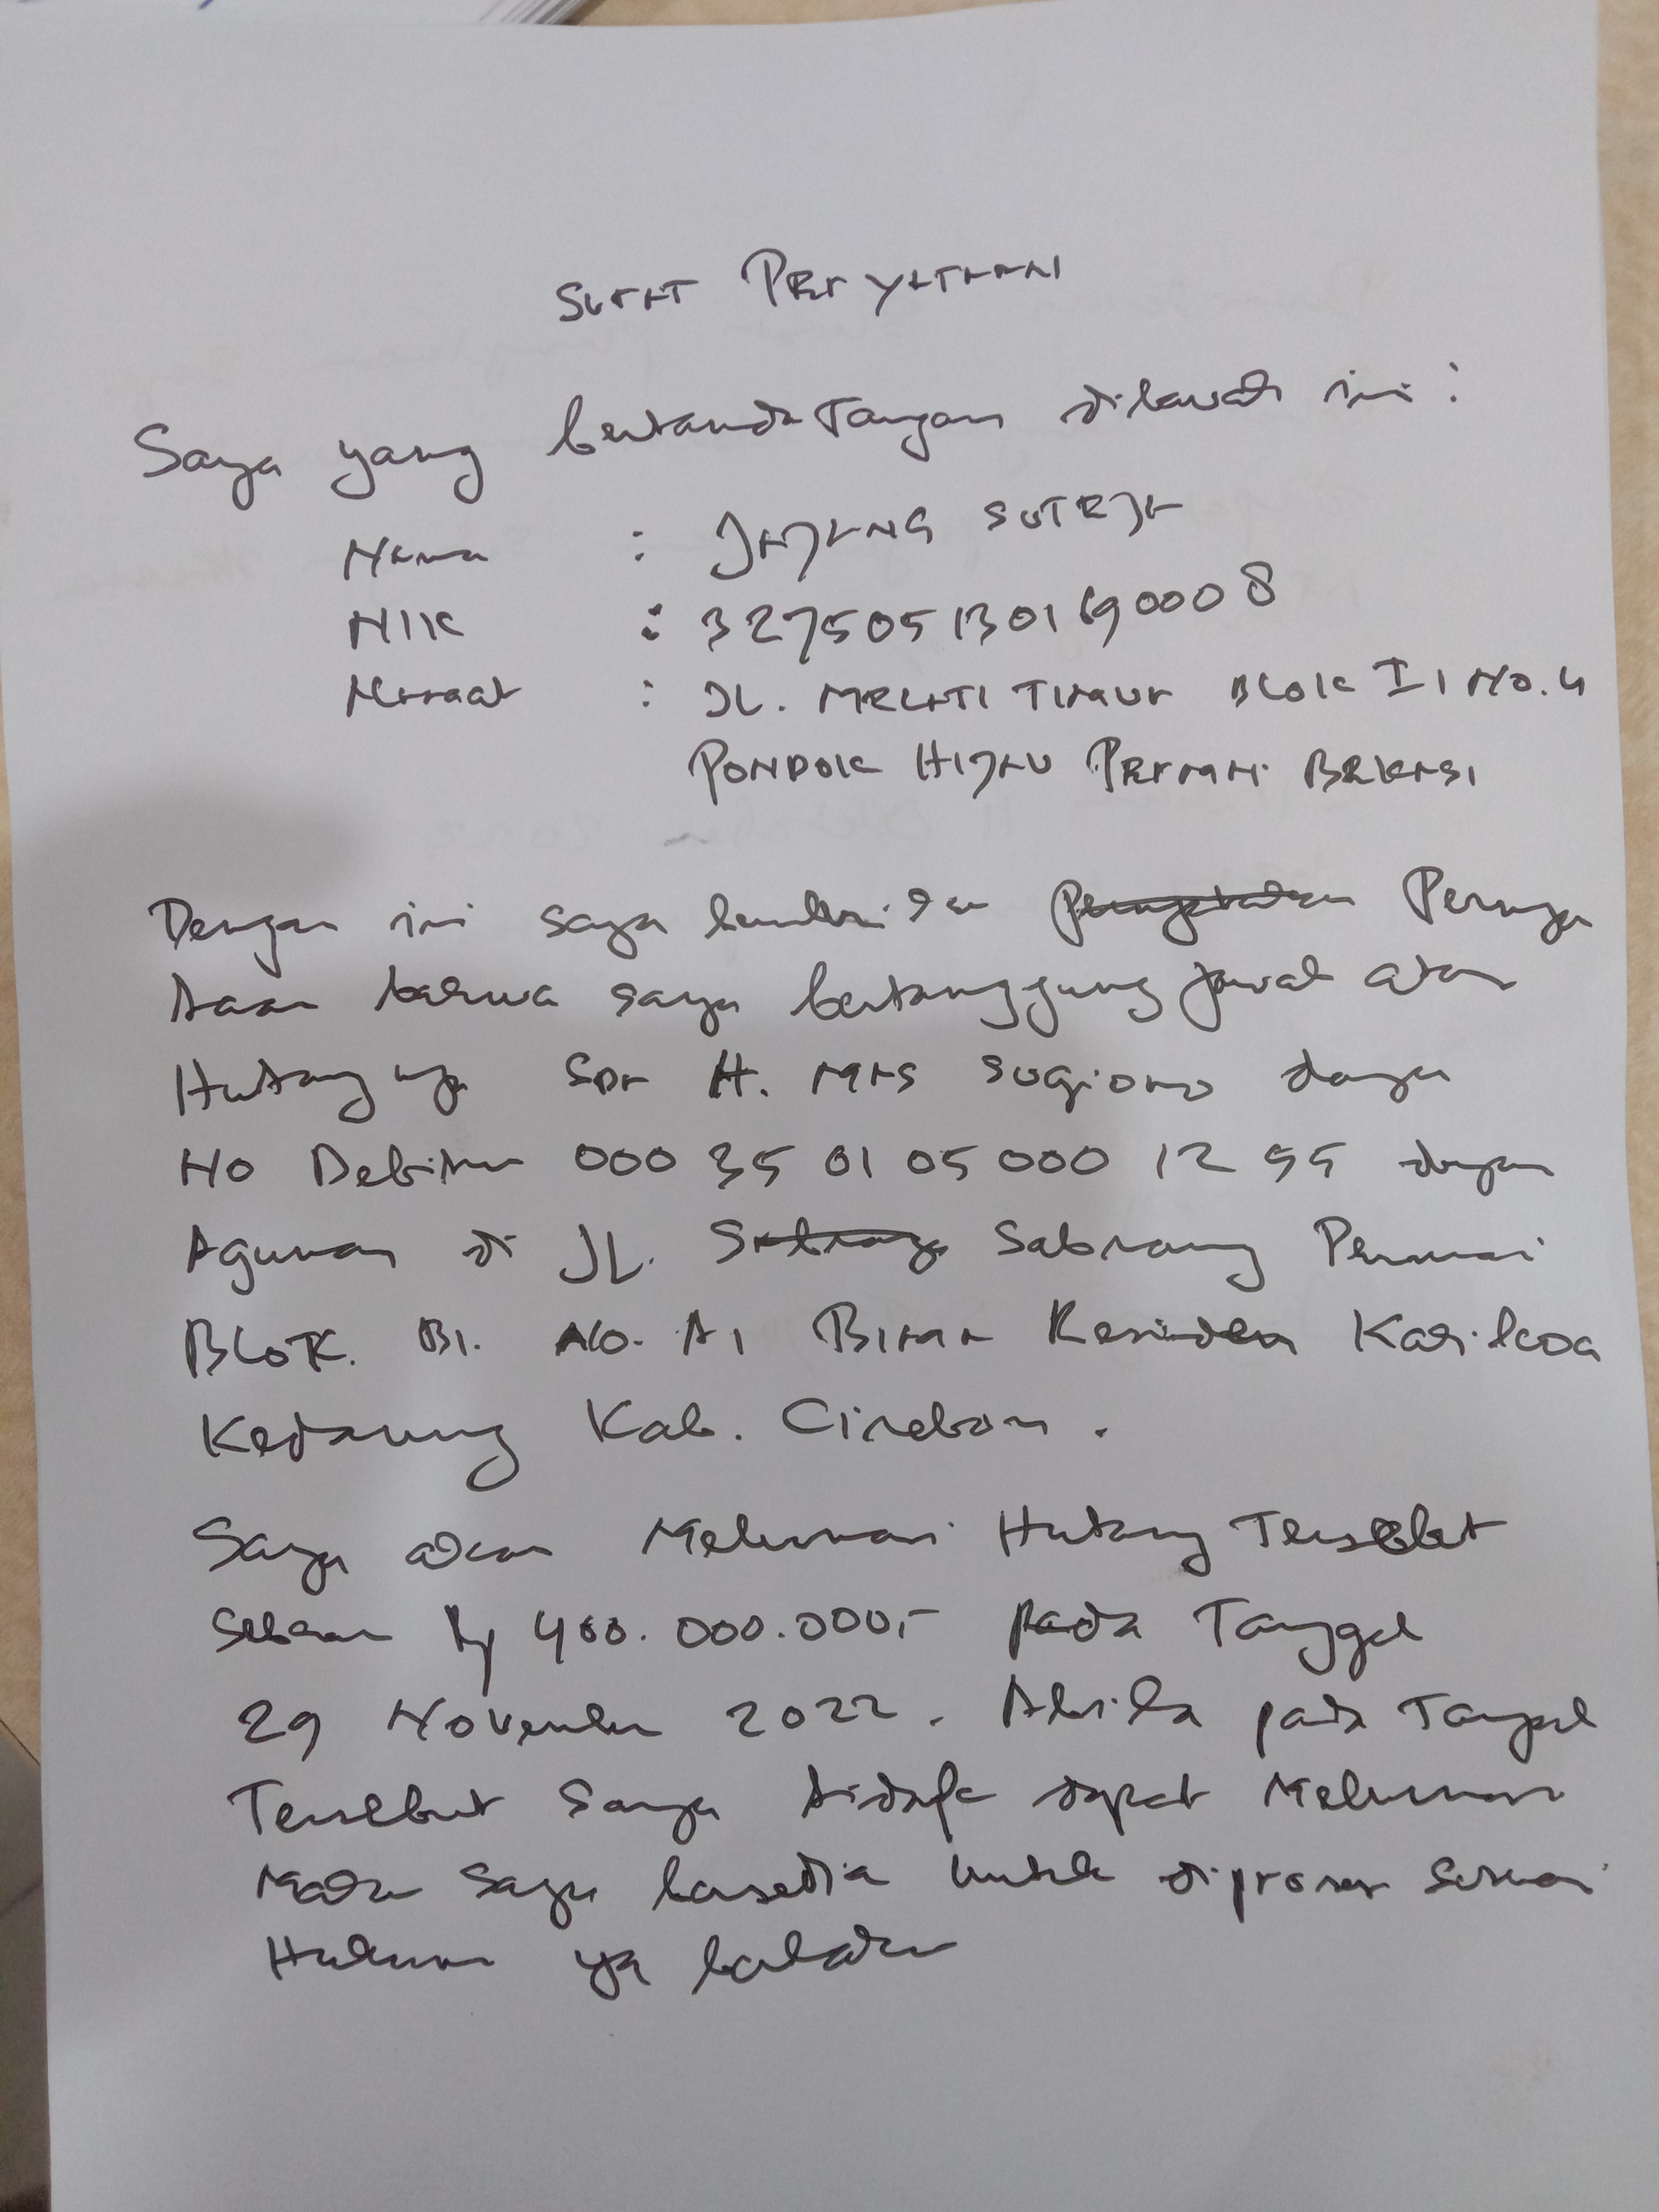 SURAT PERYATAAN
Saya yang bertanda Tangan dibawah ini :
Nama : JAJANG SUTEJA
NIK : 3275051301690008
Alamat : JL. MELATI TIMUR BLOK I 1 NO. 4
PONDOK HIJAU PERMAI BEKASI
Dengan ini saya Pernya
taan bahwa saya bertanggung jawab atas
Hutangnya SDR H. MAS SUGIONO dengan
NO Debitur 000 35 01 05 000 12 55 dengan
Agunan di JL. Sabrang Permai
BLOK. B1. NO. A1 BIMA Residen Kalikoa
Kedawung Kab. Cirebon .
Saya akan Melunasi Hutang Tersebut
sebesar Rp 400.000.000,- pada Tanggal
29 November 2022 . Abila pada Tanggal
Tersebut Saya tidak dapat Melunasi
Maka Saya bersedia untuk diproses Sesuai
Hukum yg berlaku